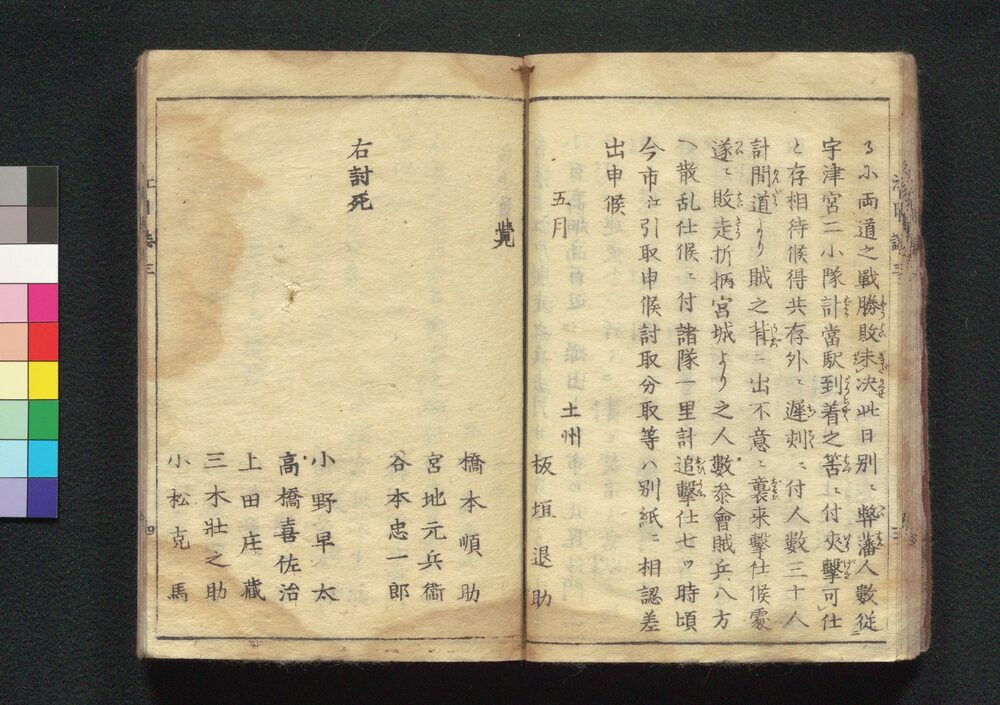 るニ両道之戰勝敗未决此日別ニ弊藩人數従
宇津宮二小隊計當駅到着之筈ニ付夾撃可仕
と存相待候得共存外ニ遲刻ニ付人數三十人
計間道より賊之背ニ出不意ニ襲来撃仕候處
遂ニ敗走折柄宮城より之人數参會賊兵八方
へ散乱仕候ニ付諸隊一里計追撃仕七ツ時頃
今市江引取申候討取分取等ハ別紙ニ相認差
出申候
五月
土州
板垣退助
覚
橋本順助
宮地元兵衞
谷本忠一郎
右討死
小野早太
高橋喜佐治
上田庄蔵
三木壯之助
小松克馬
三
四